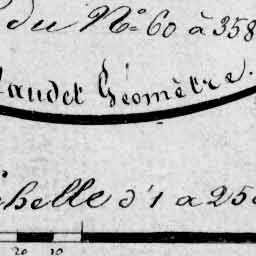 du N° 60 à 358
Géomètre.
chelle d'1 a 25
20 10